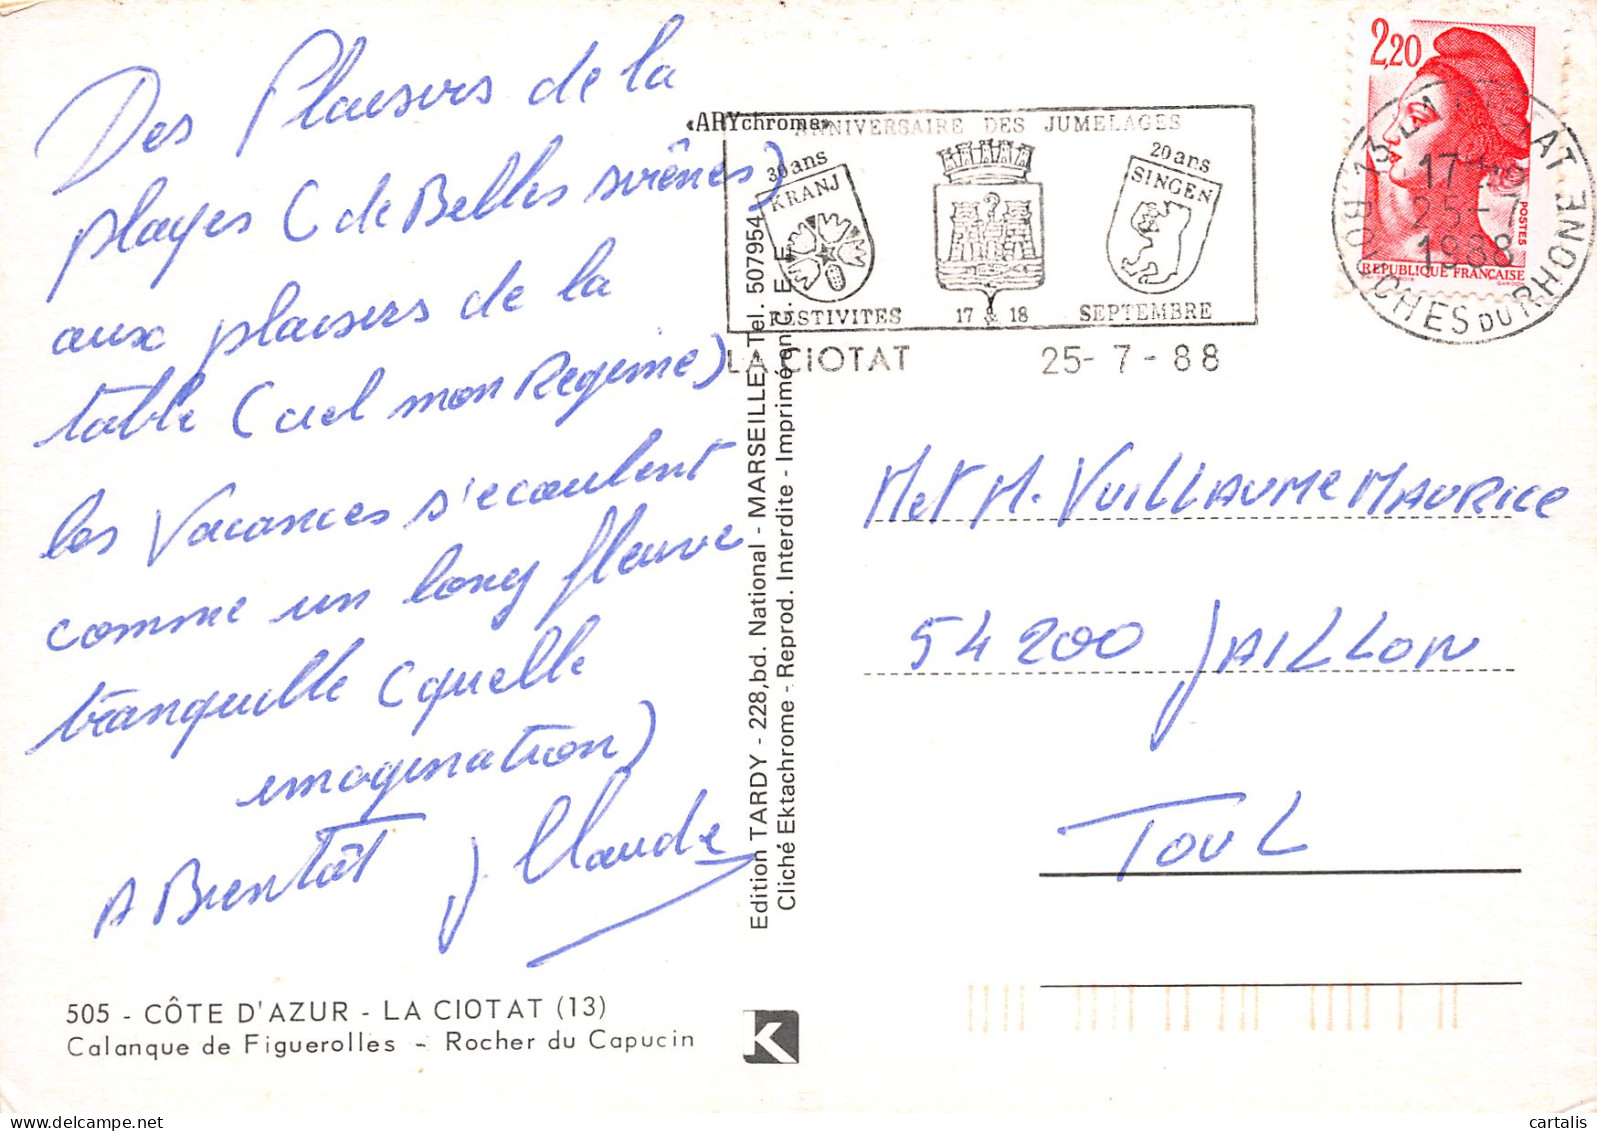 Des Plaisirs de la
plages (de Belles sirênes)
aux plaisirs de la
table (ciel mon Regime)
les Vacances s'ecoulent
comme un long fleuve
tranquille (quelle
imagination)
A Bientôt
J Claude
505 - CÔTE D'AZUR - LA CIOTAT (13)
Calanque de Figuerolles - Rocher du Capucin
Edition TARDY - 228, bd. National - MARSEILLE, Tel. 507954
Cliché Ektachrome - Reprod. Interdite - Imprimé en C. E. E.
K
«ARYchrome»
ANNIVERSAIRE DES JUMELAGES
30 ans
KRANJ
20 ans
SINGEN
FESTIVITES 17 & 18 SEPTEMBRE
LA CIOTAT 25-7-88
2,20
POSTES
REPUBLIQUE FRANÇAISE
GANDON
13 LA CIOTAT
17H
25-7
1988
BOUCHES DU RHONE
M et M. VUILLAUME MAURICE
54200 JAILLON
TOUL
cartalis